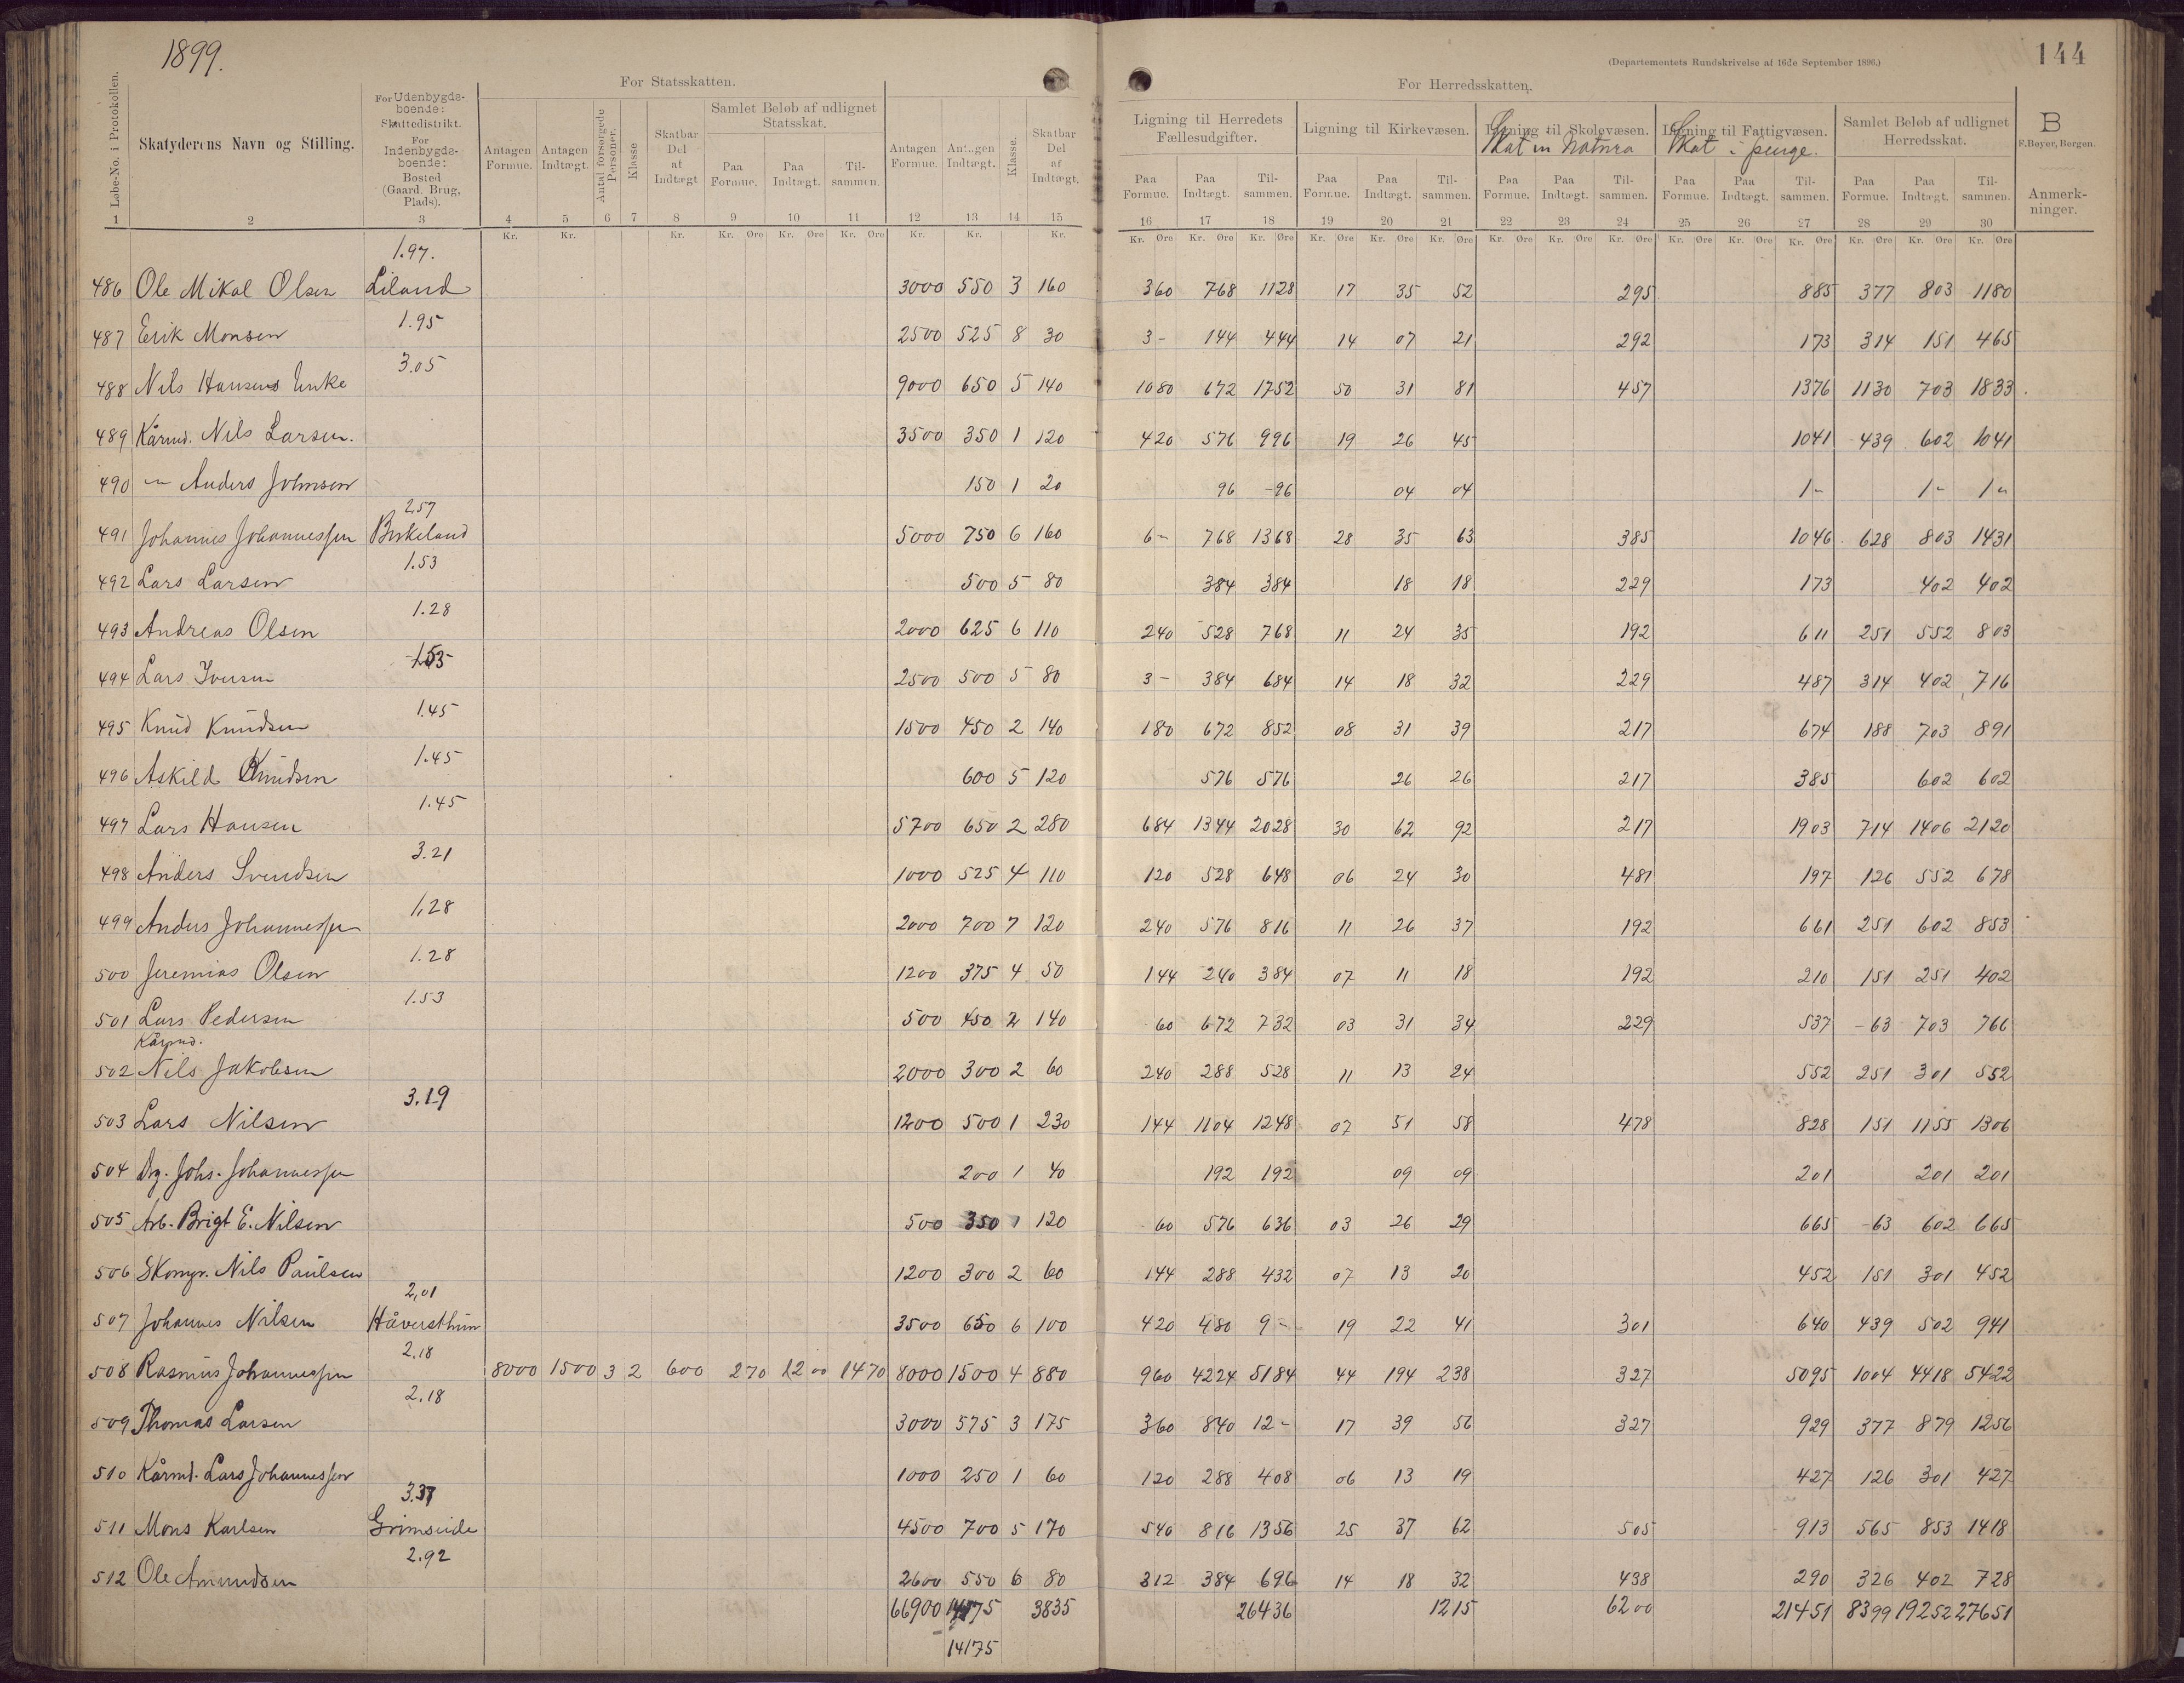 1899.
(Departementets Rundskrivelse af 16de September 1896.)
144
For Statsskatten.
For Herredsskatten.
Løbe-No. i Protokollen.
Skatyderens Navn og Stilling.
For Udenbygds-boende: Skattedistrikt. For Indenbygds-boende: Bosted (Gaard, Brug, Plads).
Antagen Formue.
Antagen Indtægt.
Antal forsørgede Personer.
Klasse
Skatbar Del af Indtægt
Samlet Beløb af udlignet Statsskat.
Paa Formue.
Paa Indtægt.
Til-sammen.
Antagen Formue.
Antagen Indtægt.
Klasse.
Skatbar Del af Indtægt.
Ligning til Herredets Fællesudgifter.
Ligning til Kirkevæsen.
Ligning til Skolevæsen.
Skat in Natura
Ligning til Fattigvæsen.
Skat i penge.
Samlet Beløb af udlignet Herredsskat.
B
F. Beyer, Bergen.
Anmerk-ninger.
Paa Formue. Paa Indtægt. Til-sammen. Paa Formue. Paa Indtægt. Til-sammen. Paa Formue. Paa Indtægt. Til-sammen. Paa Formue. Paa Indtægt. Til-sammen. Paa Formue. Paa Indtægt. Til-sammen.
1 2 3 4 5 6 7 8 9 10 11 12 13 14 15 16 17 18 19 20 21 22 23 24 25 26 27 28 29 30
Kr. Kr. Kr. Kr. Øre Kr. Øre Kr. Øre Kr. Kr. Kr. Kr. Øre Kr. Øre Kr. Øre Kr. Øre Kr. Øre Kr. Øre Kr. Øre Kr. Øre Kr. Øre Kr. Øre Kr. Øre Kr. Øre Kr. Øre Kr. Øre Kr. Øre
1.97.
486 Ole Mikal Olsen Liland 3000 550 3 160 360 768 1128 17 35 52 295 885 377 803 1180
1.95
487 Erik Monsen 2500 525 8 30 3- 144 444 14 07 21 292 173 314 151 465
3.05
488 Nils Hansens Enke 9000 650 5 140 1080 672 1752 50 31 81 457 1376 1130 703 1833
489 Kårmd. Nils Larsen. 3500 350 1 120 420 576 996 19 26 45 1041 439 602 1041
490 -"- Anders Johnsen 150 1 20 96 -96 04 04 1- 1- 1-
2,57
491 Johannes Johannessen Birkeland 5000 750 6 160 6- 768 1368 28 35 63 385 1046 628 803 1431
1.53
492 Lars Larsen 500 5 80 384 384 18 18 229 173 402 402
1.28
493 Andreas Olsen 2000 625 6 110 240 528 768 11 24 35 192 611 251 552 803
1.53
494 Lars Iversen 2500 500 5 80 3- 384 684 14 18 32 229 487 314 402 716
1.45
495 Knud Knudsen 1500 450 2 140 180 672 852 08 31 39 217 674 188 703 891
1.45
496 Askild Knudsen 600 5 120 576 576 26 26 217 385 602 602
1.45
497 Lars Hansen 5700 650 2 280 684 1344 2028 30 62 92 217 1903 714 1406 2120
3.21
498 Anders Svendsen 1000 525 4 110 120 528 648 06 24 30 481 197 126 552 678
1,28
499 Anders Johannessen 2000 700 7 120 240 576 816 11 26 37 192 661 251 602 853
1.28
500 Jeremias Olsen 1200 375 4 50 144 240 384 07 11 18 192 210 151 251 402
1.53
501 Lars Pedersen 500 450 2 140 60 672 732 03 31 34 229 537 -63 703 766
Kårmd.
502 Nils Jakobsen 2000 300 2 60 240 288 528 11 13 24 552 251 301 552
3.19
503 Lars Nilsen 1200 500 1 230 144 1104 1248 07 51 58 478 828 151 1155 1306
504 Drg. Johs. Johannessen 200 1 40 192 192 09 09 201 201 201
505 Arb. Brigt E. Nilsen 500 350 1 120 60 576 636 03 26 29 665 -63 602 665
506 Skomgr. Nils Paulsen 1200 300 2 60 144 288 432 07 13 20 452 151 301 452
2,01
507 Johannes Nilsen Håversthun 3500 650 6 100 420 480 9- 19 22 41 301 640 439 502 941
2.18
508 Rasmus Johannessen 8000 1500 3 2 600 270 12 00 1470 8000 1500 4 880 960 4224 5184 44 194 238 327 5095 1004 4418 5422
2.18
509 Thomas Larsen 3000 575 3 175 360 840 12- 17 39 56 327 929 377 879 1256
510 Kårmd. Lars Johannessen 1000 250 1 60 120 288 408 06 13 19 427 126 301 427
3.37
511 Mons Karlsen Grimseide 4500 700 5 170 540 816 1356 25 37 62 505 913 565 853 1418
2.92
512 Ole Amundsen 2600 550 6 80 312 384 696 14 18 32 438 290 326 402 728
66900 14175 3835 26436 1215 6200 21451 8399 19252 27651
14175